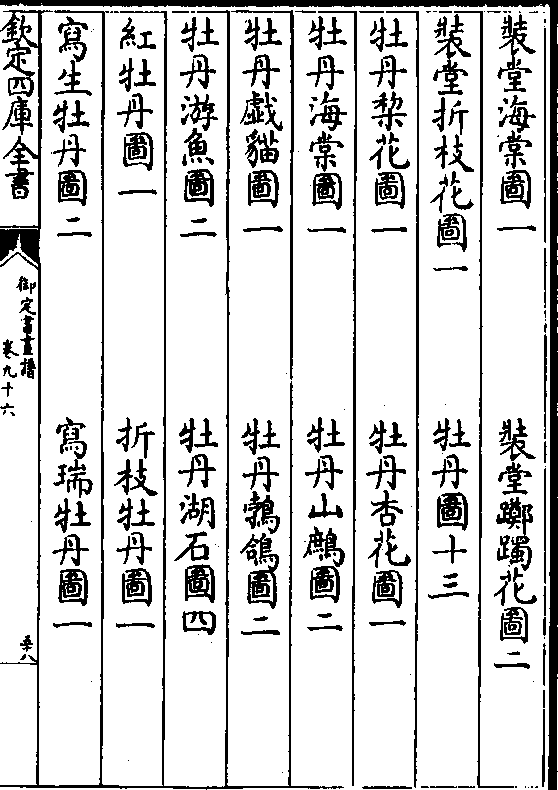 裝堂海棠圖一　裝堂躑躅花圖二
裝堂折枝花圖一　牡丹圖十三
牡丹梨花圖一　牡丹杏花圖一
牡丹海棠圖一　牡丹山鷓圖二
牡丹戲貓圖一　牡丹鵓鴿圖二
牡丹游魚圖二　牡丹湖石圖四
紅牡丹圖一　折枝牡丹圖一
寫生牡丹圖二　寫瑞牡丹圖一
欽定四庫全書
御定書畫譜
卷九十六
五十八